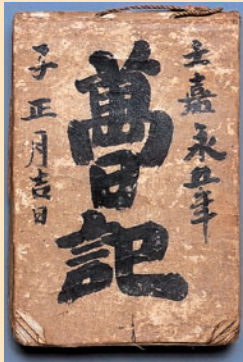 壬嘉永五年
萬日記
子正月吉日